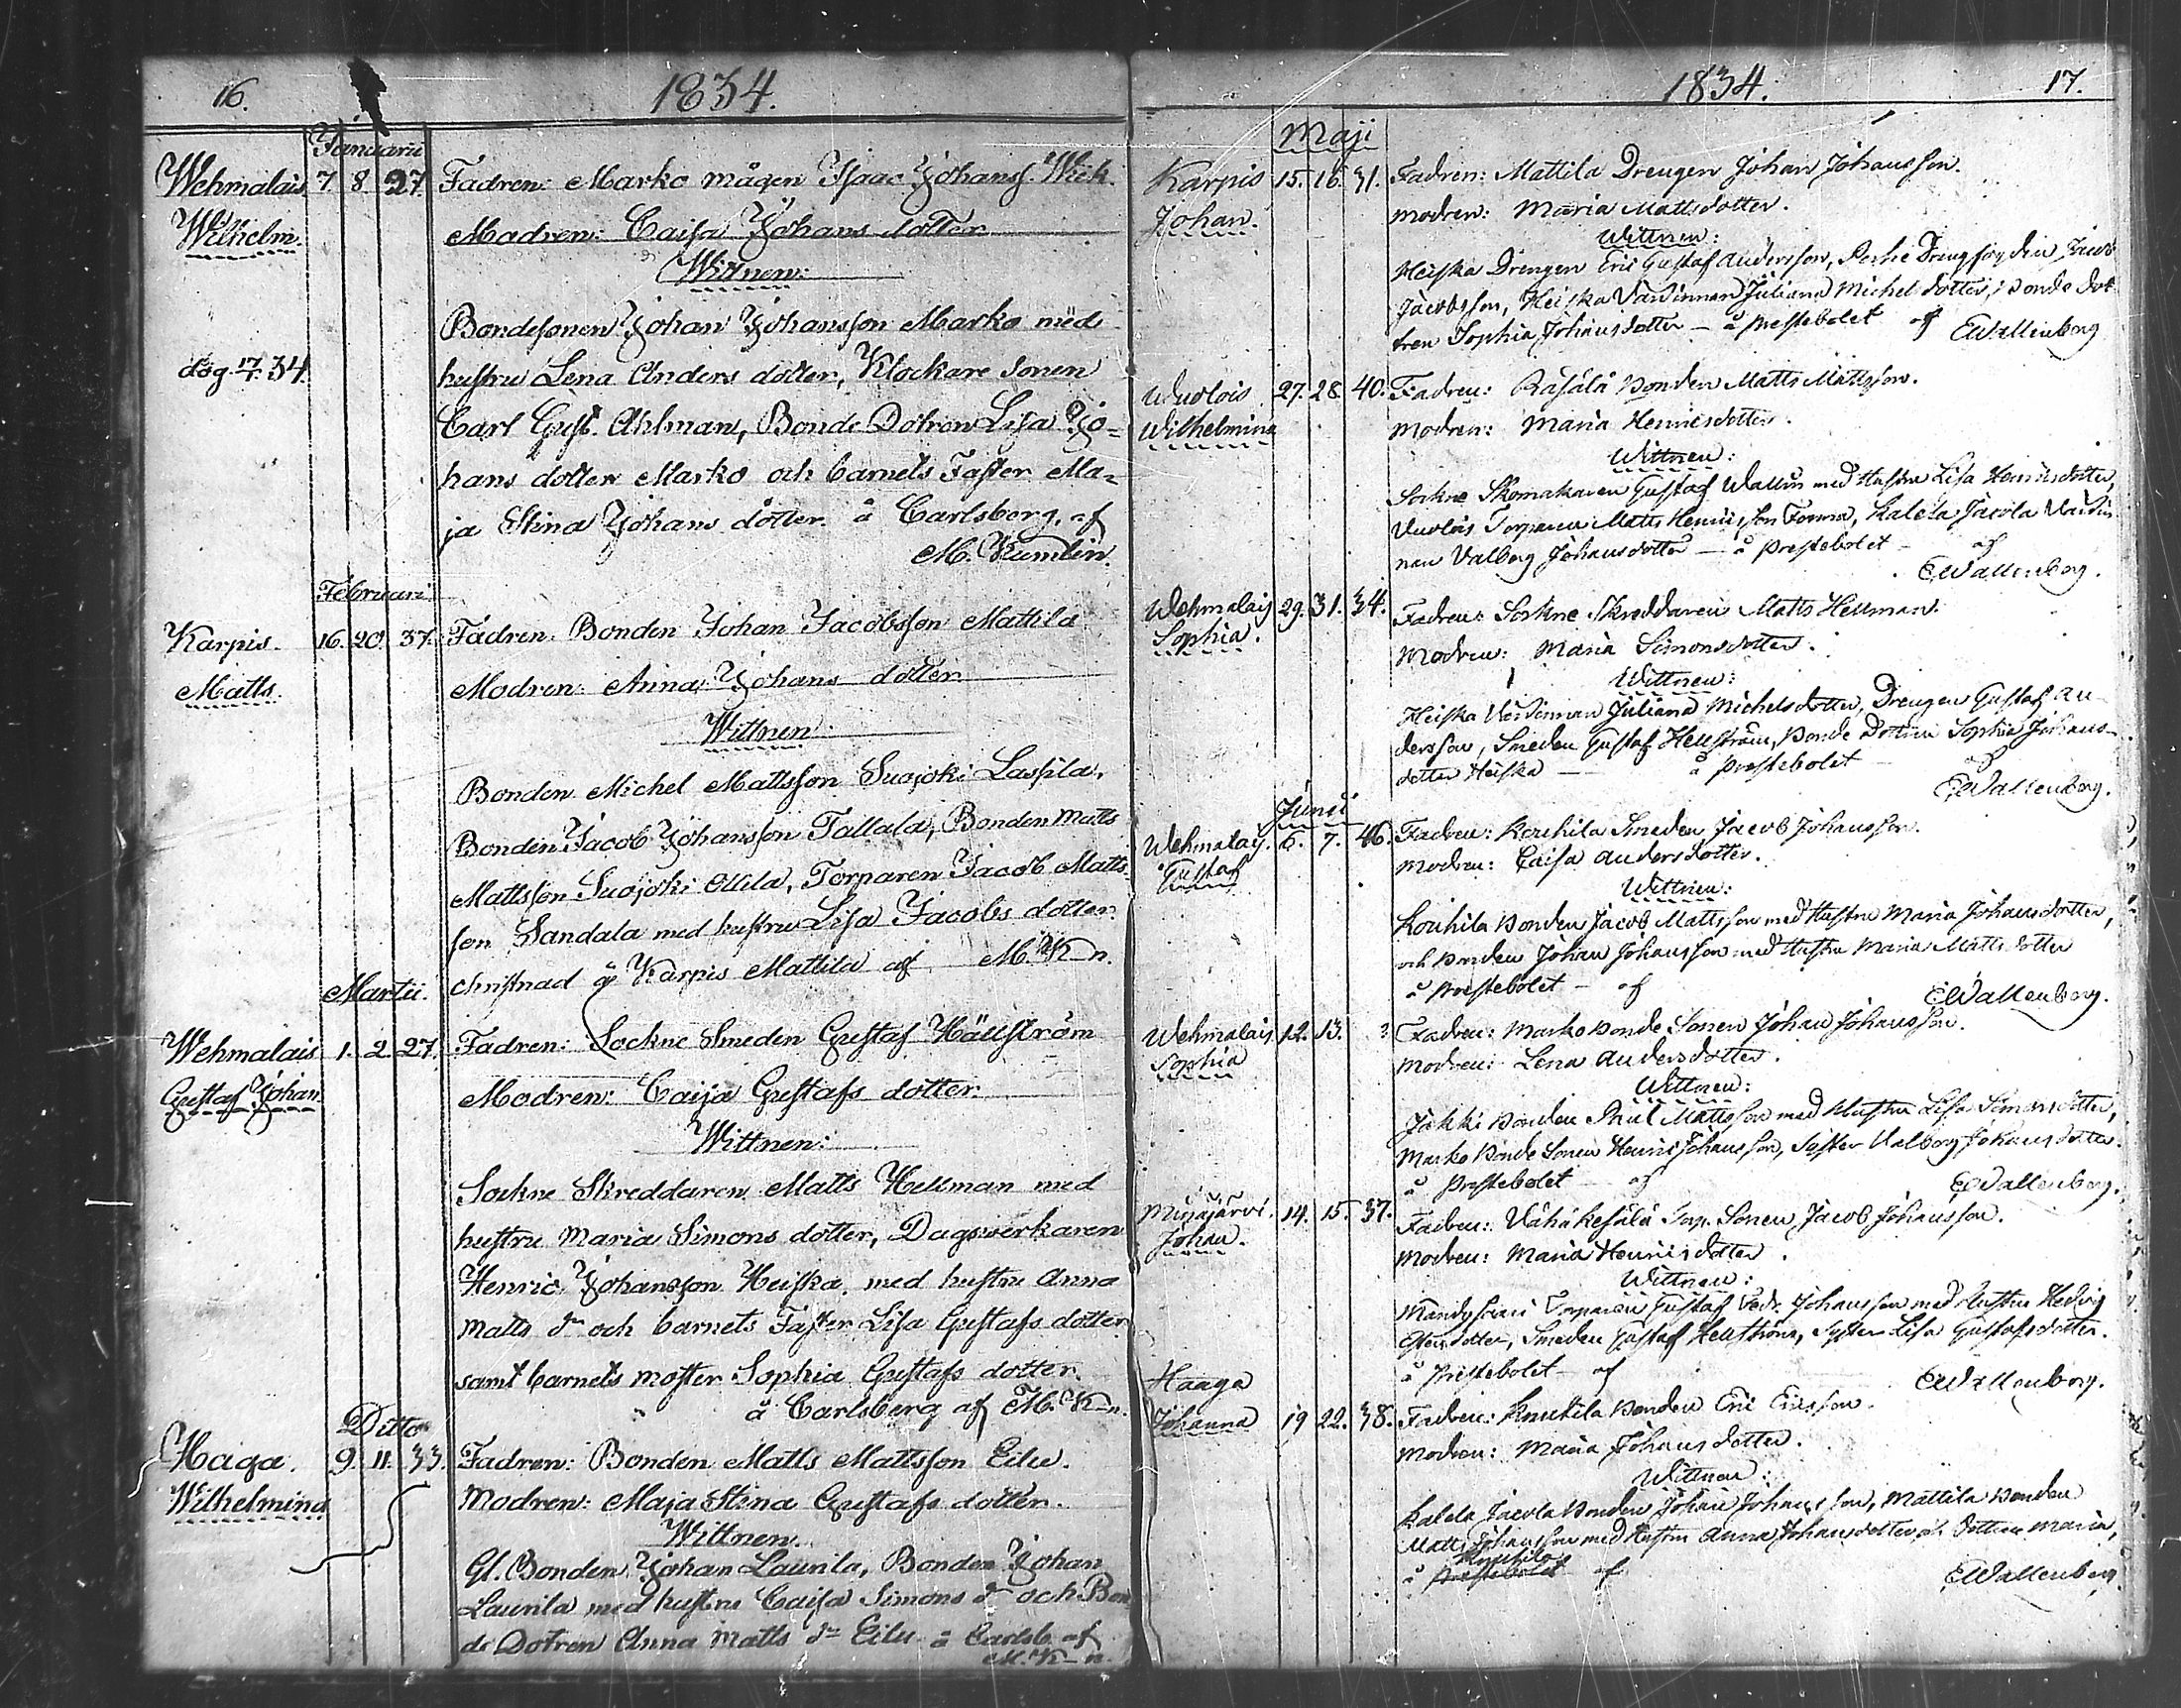 16.
1834.
Januarii
Wehmalais 7 8 27. Fadren: Marko mågen Isaac Johanss. Wick.
Wilhelm. Modren: Caisa Johans dotter
Wittnen:
Bondesonen Johan Johansson Marko med
dög. 17/1. 34. hustru Lena Anders dotter, Klockare Sonen
Carl Gust. Ahlman, Bonde Dotren Lisa Jo-
hans dotter Marko och barnets Faster Ma-
ja Stina Johans dotter å Carlsberg, af
M. Kumlin.
Februarii
Karpis. 16. 20. 37. Fadren. Bonden Johan Jacobsson Mattila
Matts. Modren: Anna Johans dotter
Wittnen:
Bonden Michel Mattsson Suojoki Lassila,
Bonden Jacob Johansson Tallala, Bonden Matts
Mattsson Suojoki Ollila, Torparen Jacob Matts
son Sandala med hustru Lisa Jacobs dotter.
christnad å Karpis Mattila af M. K–n.
Martii.
Wehmalais 1. 2. 27. Fadren: Sockne Smeden Gustaf Hällström
Gustaf Johan. Modren: Caija Gustafs dotter.
Wittnen:
Sockne Skreddaren Matts Hellman med
hustru Maria Simons dotter, Dagswerkaren
Henric Johansson Heiska, med hustru Anna
Matts dr och barnets Faster Lisa Gustafs dotter
samt barnets moster Sophia Gustafs dotter.
å Carlsberg af M. K–n.
Ditto
Haga. 9. 11. 33. Fadren: Bonden Matts Mattsson Eilu.
Wilhelmina Modren: Maja Stina Gustafs dotter.
Wittnen.
Gl. Bonden Johan Laurila, Bonden Johan
Laurila med hustru Caisa Simons dr och Bon
de Dotren Anna Matts dr Eilu å Carlsb. af
M. K–n.
1834.
17.
Maji
Karpis 15. 16. 31. Fadren: Mattila Drengen Johan Johansson.
Johan. Modren: Maria Mattsdotter.
Wittnen:
Heiska Drengen Eric Gustaf Andersson, Jacob
Jacobsson, Heiska Värdinnan Juliana Michelsdotter, Bonde Dot
tren Sophia Johansdotter – å Prestebolet af EWallenberg
Wuolois 27. 28. 40. Fadren: Räsälä Bonden Matts Mattsson.
Wilhelmina Modren: Maria Henricsdotter.
Wittnen:
Sockne Skomakaren Gustaf Wallin med Hustru Lisa Henricsdotter,
Wuolois Torparen Matts Henricsson Forma, Kalela Jacola Värdin
nan Valborg Johansdotter – å Prestebolet – af
EWallenberg.
Wehmalais 29. 31. 34. Fadren: Sockne Skreddaren Matts Hellman.
Sophia. Modren: Maria Simonsdotter.
Wittnen:
Heiska Värdinnan Juliana Michelsdotter, Drengen Gustaf An-
dersson, Smeden Gustaf Hellström, Bonde Dottren Sophia Johans-
dotter Heiska – å Prestebolet – af
EWallenberg.
Junii
Wehmalais. 6. 7. 46. Fadren: Kouhila Smeden Jacob Johansson.
Gustaf Modren: Caisa Andersdotter.
Wittnen:
Kouhila Bonden Jacob Mattsson med Hustru Maria Johansdotter,
och Bonden Johan Johansson med Hustru Maria Mattsdotter
å Prestebolet – af EWallenberg.
Wehmalais 12. 13. ? Fadren: Marko Bonde Sonen Johan Johansson.
Sophia Modren: Lena Andersdotter.
Wittnen:
Jakki Bonden Paul Mattsson med Hustru Lisa Simonsdotter,
Marko Bonde Sonen Henric Johansson, Syster Valborg Johansdotter.
å Prestebolet – af EWallenberg.
Minäjärvi. 14. 15. 37. Fadren: Vähäkesälä Torp. Sonen Jacob Johansson.
Johan. Modren: Maria Henricsdotter.
Wittnen:
Torparen Gustaf Fedr. Johansson med Hustru Hedvig
Smeden Gustaf Hellström, Syster Lisa Gustafsdotter.
å Prestebolet – af EWallenberg.
Haaga
Johanna 19 22. 38. Fadren: Knuutila Bonden Eric Ericsson.
Modren: Maria Johansdotter.
Wittnen:
Kalela Jacola Bonden Johan Johansson, Mattila Bonden
Matts Johansson med Hustru Anna Johansdotter och Dottren Maria,
Knuutila
å Prestebolet af EWallenberg.